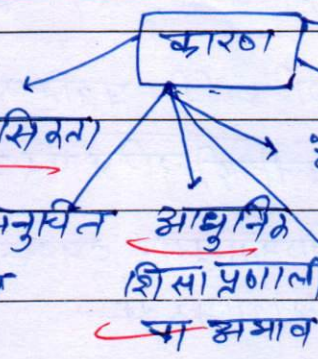 कारण
नुचित आधुनिक
शिक्षा प्रणाली
का अभाव